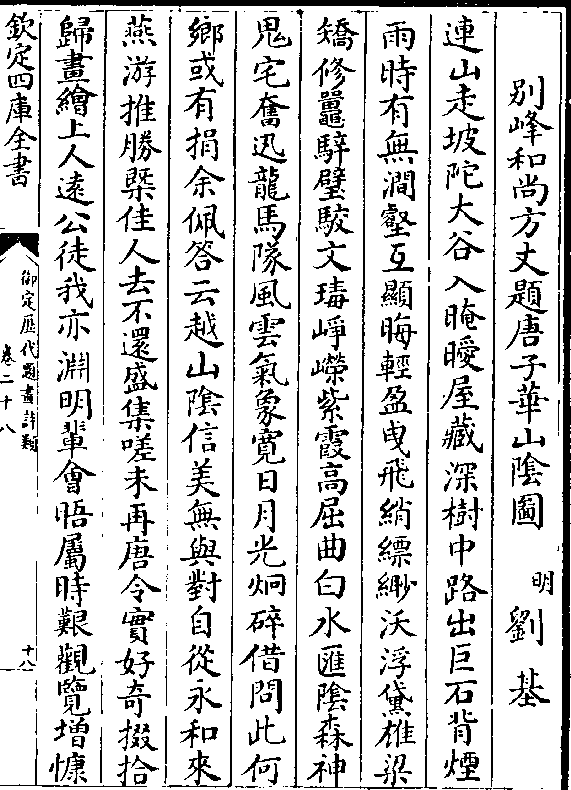 別峰和尚方丈題唐子華山陰圖
明 劉基
連山走坡陀大谷入晻曖屋藏深樹中路出巨石背煙
雨時有無澗壑互顯晦輕盈曳飛綃縹緲沃浮黛榱梁
矯修鼉騂璧駮文瑇崢嶸紫霞高屈曲白水匯陰森神
鬼宅奮迅龍馬隊風雲氣象寛日月光烱碎借問此何
鄉或有捐余佩答云越山隂信美無與對自從永和來
燕游推勝槩佳人去不還盛集嗟未再唐令實好奇掇拾
歸畫繪上人逺公徒我亦淵明軰會晤屬時艱觀覽增慷
欽定四庫全書
御定歷代題畫詩類
卷二十八
十八